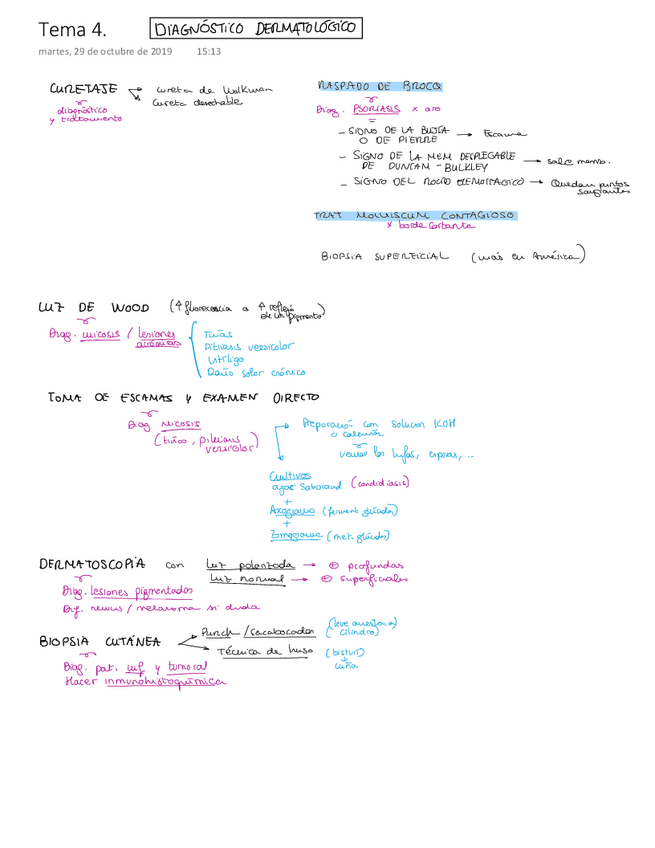 Tema 4.
DIAGNÓSTICO DERMATOLÓGICO
martes, 29 de octubre de 2019 15:13
CURETAJE
cureta de Wolkman
Cureta desechable
diagnóstico
y tratamiento
RASPADO DE BROCQ
Diag. PSORIASIS x aro
- SIGNO DE LA BUJÍA → Escama
O DE PIERRE
- SIGNO DE LA MEM DESPLEGABLE → sale memb.
DE DUNCAM-BULKLEY
- SIGNO DEL ROCÍO HEMORRAGICO → Quedan puntos
sangrantes
TRAT MOLUSCUM CONTAGIOSO
x borde cortante
BIOPSIA SUPERFICIAL (más en América)
LUZ DE WOOD (↑ fluorescencia a ↑ reflejo
de un pigmento)
Diag. micosis / lesiones
acrómicas
Tiñas
Pitiriasis versicolor
Vitíligo
Daño solar crónico
TOMA DE ESCAMAS Y EXAMEN DIRECTO
Diag MICOSIS
(tiñas, pitiriasis
versicolor)
Preparación con solucion KOH
vemos las hifas, esporas,...
Cultivos
agar Saboraud (candidiasis)
+
Axograma (ferment. glúcidos)
+
Zimograma (met. glúcido)
DERMATOSCOPIA con Luz polarizada → ⊕ profundas
Luz normal → ⊕ superficiales
Diag. lesiones pigmentadas
Dif. nevus / melanoma si duda
BIOPSIA CUTÁNEA
Punch / sacabocados (leve anestesia)
(cilindro)
Técnica de huso (bisturí)
+
cuña
Diag. pat. inf y tumoral
Hacer inmunohistoquímica